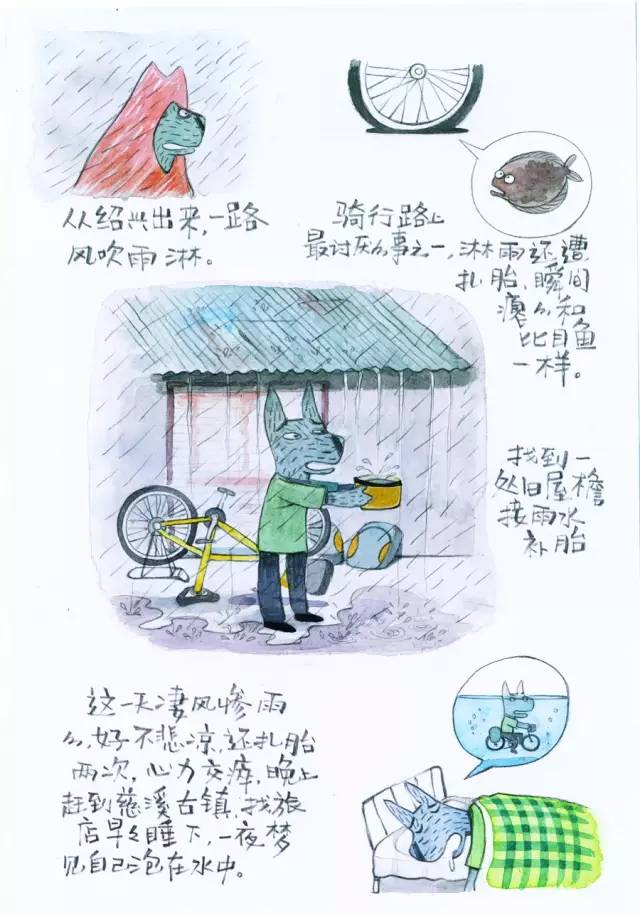 从绍兴出来,一路
风吹雨淋。
骑行路上
最讨厌的事之一,淋雨还遭
扎胎,瞬间
瘪的和
比目鱼
一样。
找到一
处旧屋檐
接雨水
补胎
这一天凄风惨雨
的,好不悲凉,还扎胎
两次,心力交瘁,晚上
赶到慈溪古镇,找旅
店早早睡下,一夜梦
见自己泡在水中。